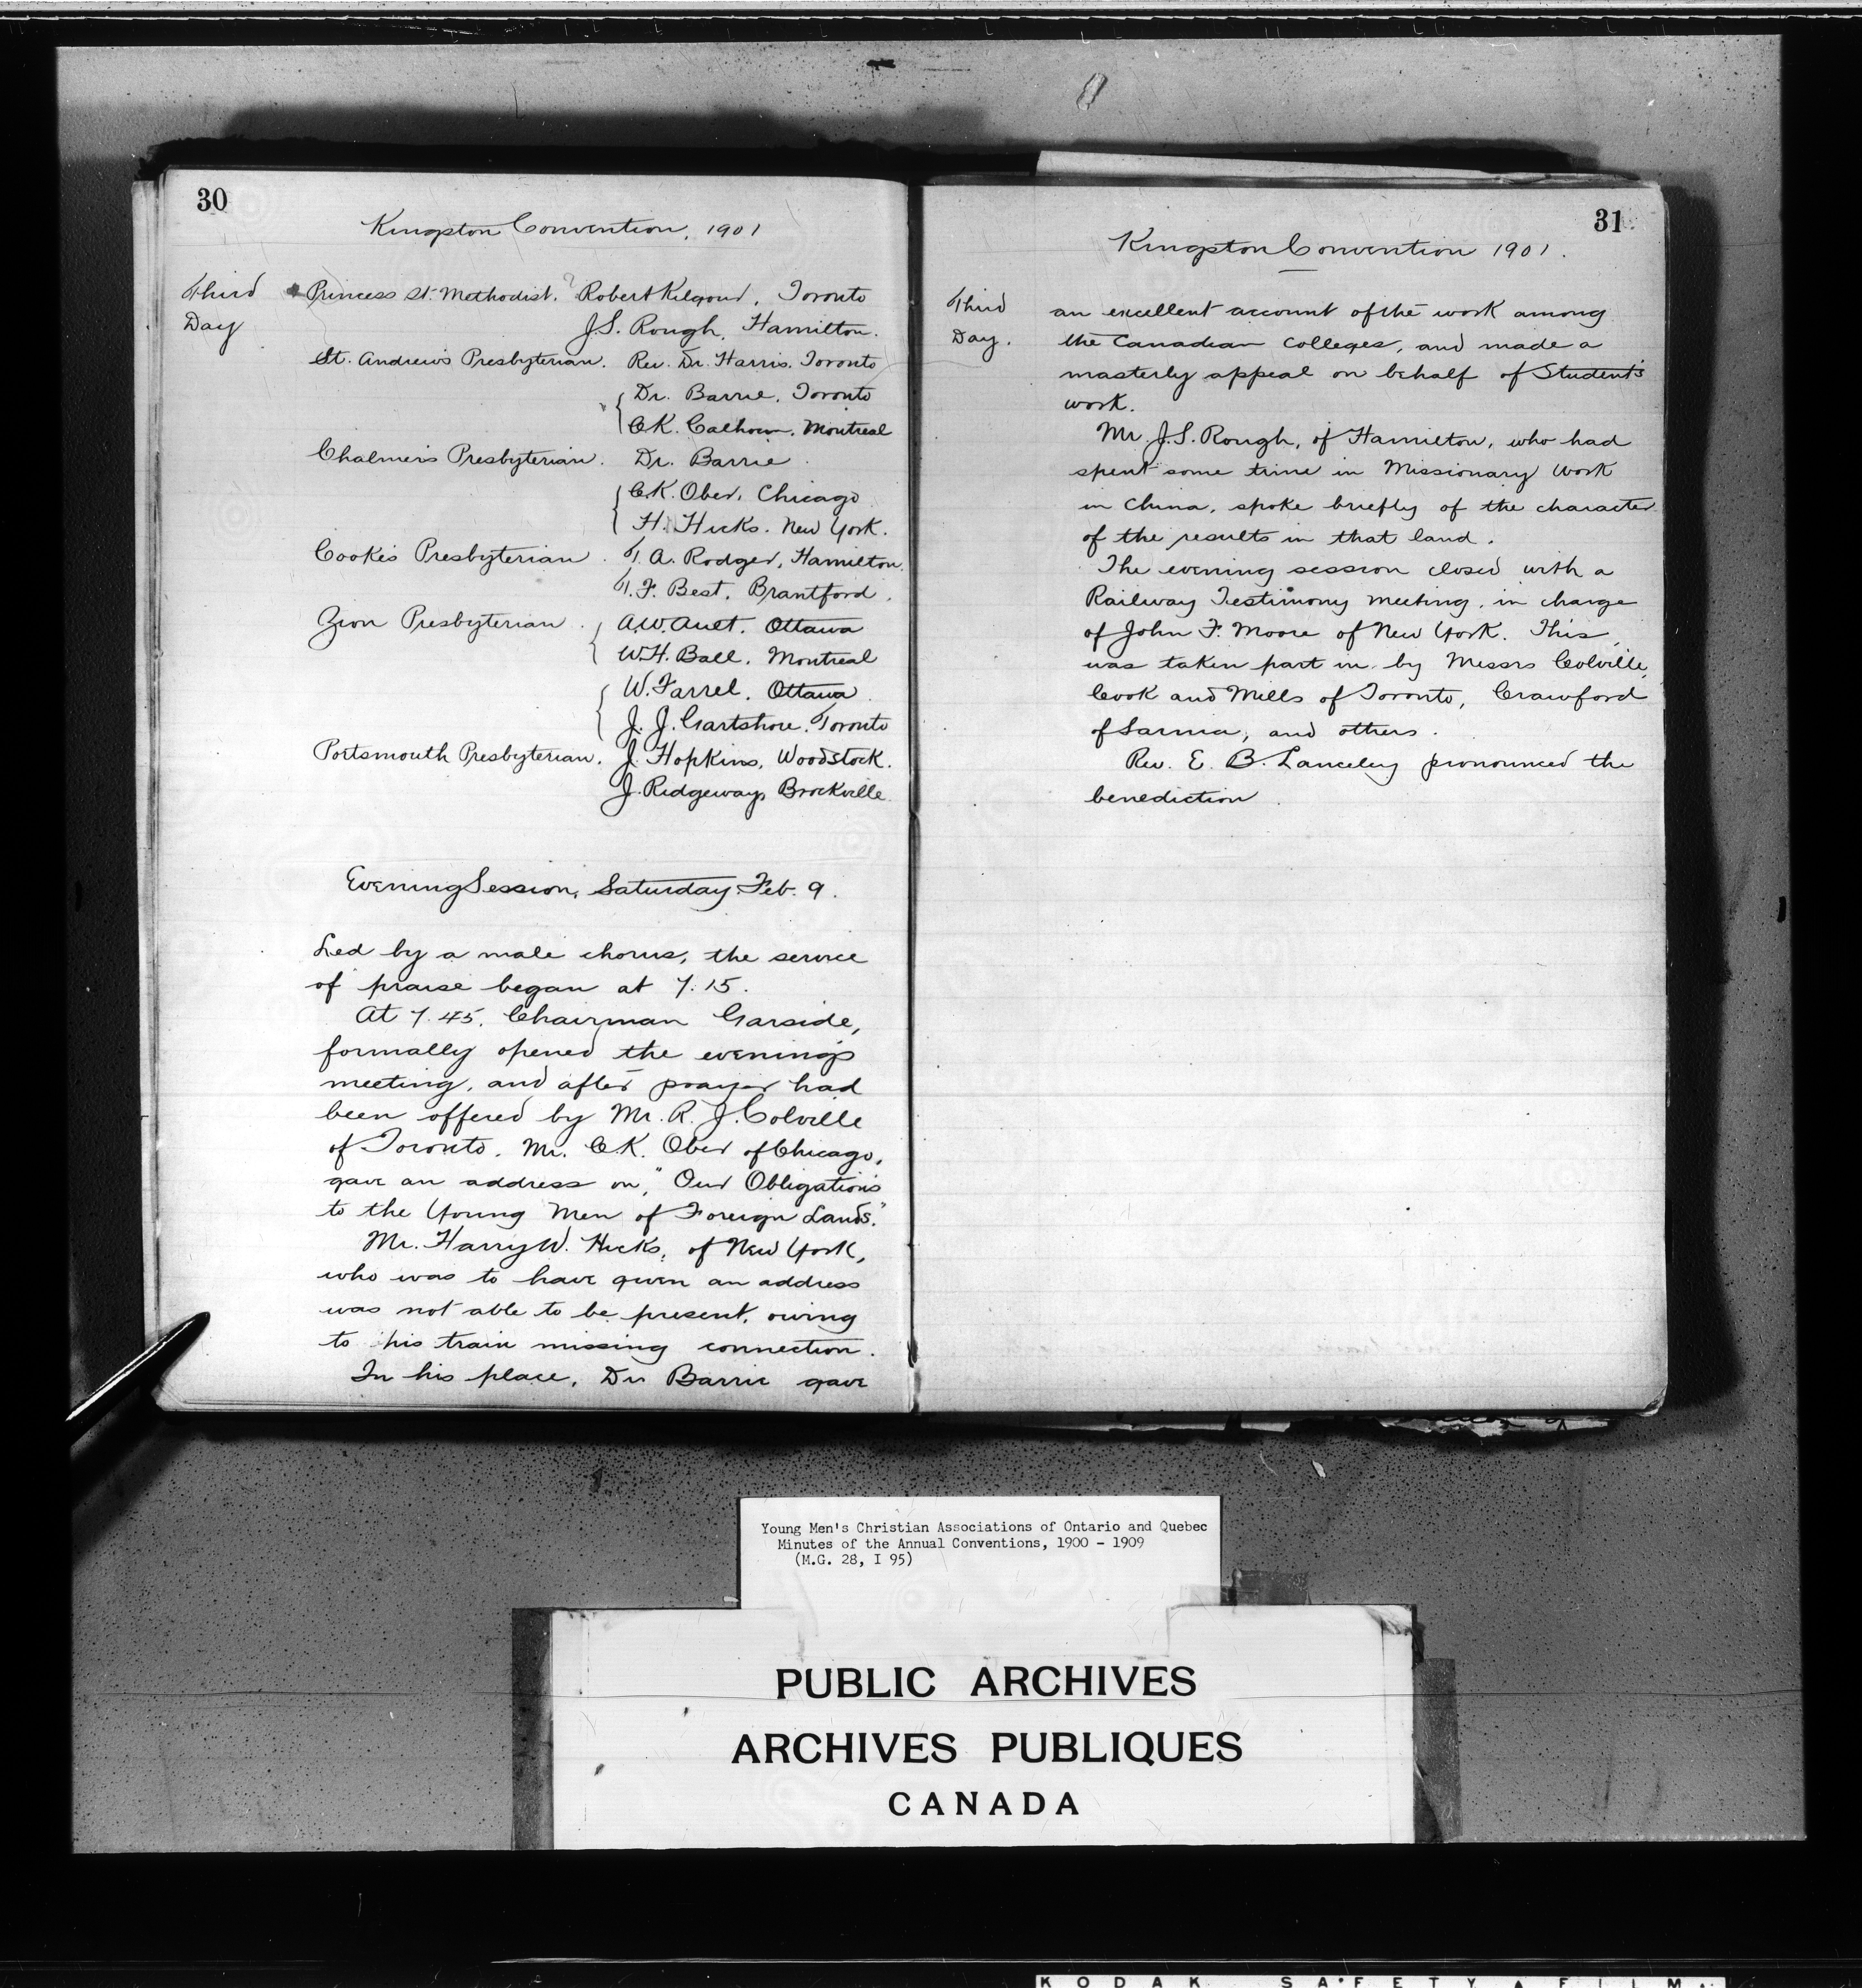 30
Kingston Convention, 1901
Third Day
Princess St. Methodist. ? Robert Kilgour, Toronto
J.S. Rough, Hamilton.
St. Andrew's Presbyterian. Rev. Dr. Harris. Toronto
Dr. Barrie, Toronto
C.K. Calhoun, Montreal
Chalmer's Presbyterian. Dr. Barrie.
C.K. Ober, Chicago
H. Hicks. New York.
Cooke's Presbyterian. T. A. Rodger, Hamilton.
T. F. Best, Brantford.
Zion Presbyterian. A.W. Ault. Ottawa
W.H. Ball. Montreal
W. Farrel. Ottawa.
J. J. Gartshore. Toronto
Portsmouth Presbyterian. J. Hopkins, Woodstock.
J. Ridgeway, Brockville.
Evening Session, Saturday. Feb. 9.
Led by a male chorus, the service
of praise began at 7.15.
At 7.45. Chairman Garside,
formally opened the evening's
meeting, and after prayer had
been offered by Mr. R. J. Colville
of Toronto. Mr. C.K. Ober of Chicago,
gave an address on, "Our Obligations
to the Young Men of Foreign Lands."
Mr. Harry W. Hicks, of New York,
who was to have given an address
was not able to be present, owing
to his train missing connection.
In his place, Dr. Barrie gave
31
Kingston Convention 1901.
Third Day.
an excellent account of the work among
the Canadian Colleges, and made a
masterly appeal on behalf of Student's
work.
Mr. J.S. Rough, of Hamilton, who had
spent some time in Missionary work
in China, spoke briefly of the character
of the results in that land.
The evening session closed with a
Railway Testimony meeting, in charge
of John F. Moore of New York. This
was taken part in by Messrs Colville,
Cook and Mills of Toronto, Crawford
of Sarnia, and others.
Rev. E. B. Lanceley pronounced the
benediction.
Young Men's Christian Associations of Ontario and Quebec
Minutes of the Annual Conventions, 1900 - 1909
(M.G. 28, I 95)
PUBLIC ARCHIVES
ARCHIVES PUBLIQUES
CANADA
KODAK SAFETY FILM